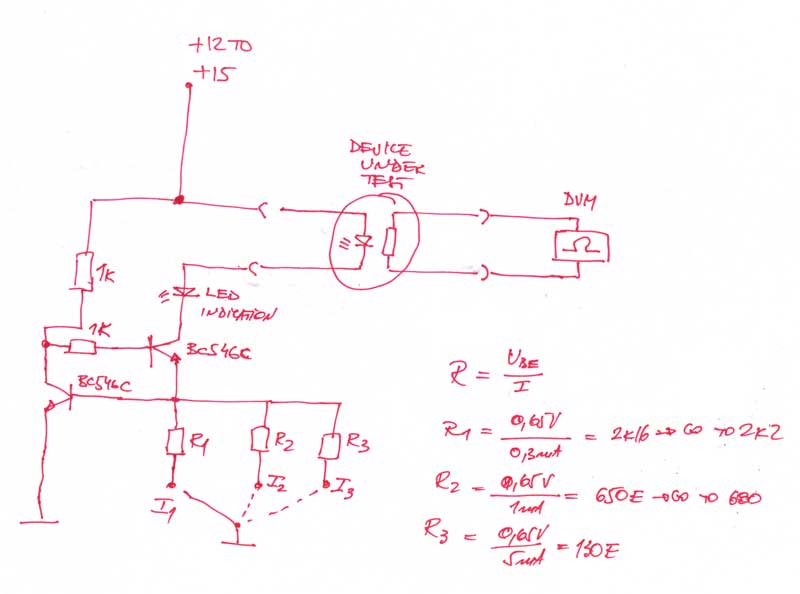 +12 TO
+15
DEVICE
UNDER
TEST
DVM
Ω
1K
LED
INDICATION
1K
BC546C
BC546C
R1
R2
R3
I1
I2
I3
R = UBE / I
R1 = 0,65V / 0,3mA = 2k16 → GO TO 2K2
R2 = 0,65V / 1mA = 650E → GO TO 680
R3 = 0,65V / 5mA = 130E